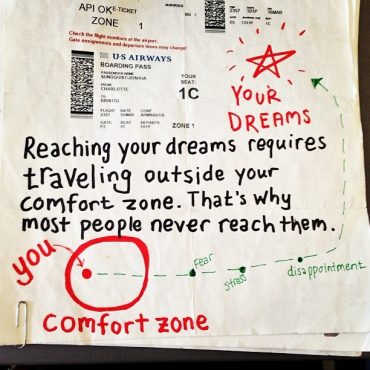 API OK E-TICKET
ZONE 1
Check the flight monitors at the airport.
Gate assignments and departure times may change!
US AIRWAYS
BOARDING PASS
PASSENGER NAME
YOUR
SEAT:
1C
FROM
CHARLOTTE
TO
BRISTOL
FLIGHT DATE CONF
GATE SEAT DEPARTS
E5 1C 101P
ZONE 1
YOUR
DREAMS
Reaching your dreams requires
traveling outside your
comfort zone. That's why
most people never reach them.
you
fear
stress
disappointment
comfort zone